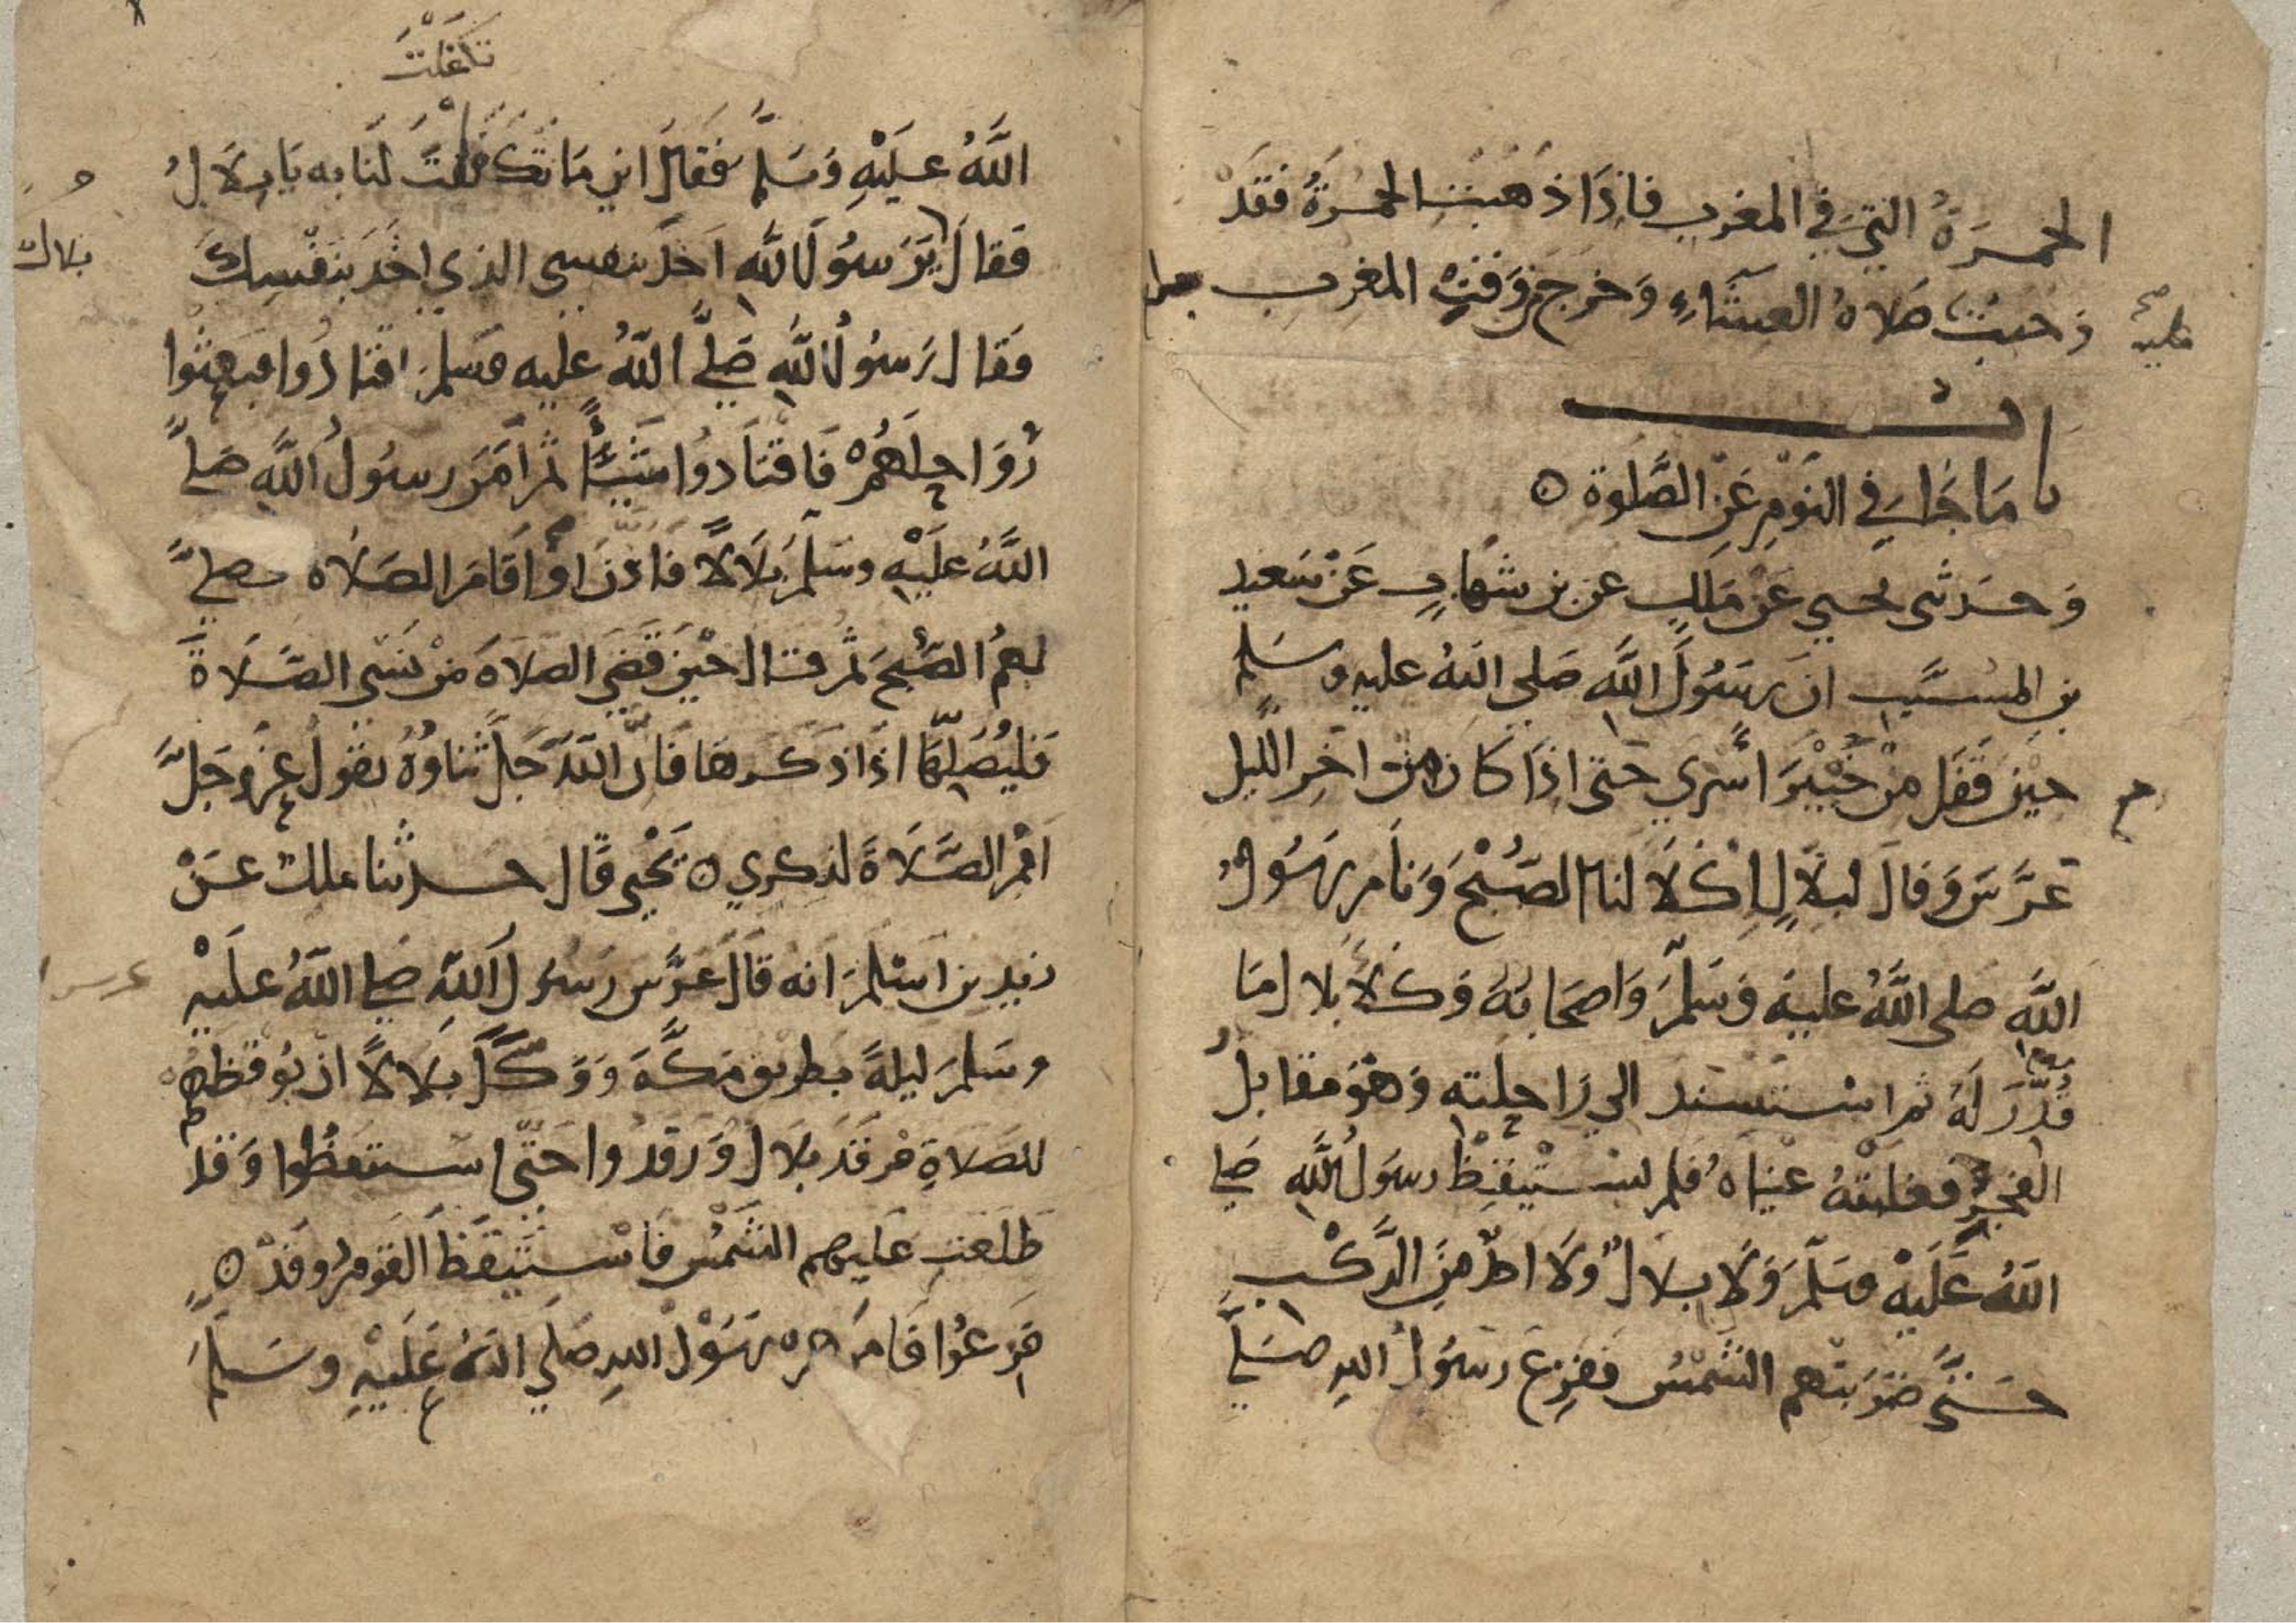 الحُمْرَةُ التِي في المغرب فاذَا ذَهَبَتِ الحُمْرَةُ فَقَدْ
وَجبتْ صَلاةُ العِشَاءِ وَخرجَ وَقتِ المغرب
عليه
باب
مَا جَا في النَوْمِ عَنْ الصَّلَوة ه
وَحَدثنى يحيي عَنْ مَلِكٍ عن بن شهَابٍ عَنْ سَعِيد
بن المُسَيَّب انَ رَسُولَ اللَّهِ صَلى اللهُ عليه وسَلم
حِيْنَ قَفَل مِنْ خَيْبَرَ اسْري حَتى اذَا كَان مِن اخِر اللَّيل
عَرَّسَ وَقالَ لبلالٍ اِكْلَا لنا الصُبْحَ وَنَامَ رَسُولُ
اللَّهِ صَلى اللَّهُ عليهِ وَسَلّمَ وَاصحَابهُ وَكَلَأ بلال مَا
قُدِّرَ لَهُ ثم اسْتسند الي رَاحِلته وَهْوَ مقابلُ
الفجرِ فغلبتهُ عيناهُ فلم يستيْقِظْ رسوَلُ اللَّهِ صلى
اللهُ عَلَيْهِ وسَلّمَ وَلَا بلالٌ وَلَا احدٌ مِنَ الرَّكْب
حَتَّى ضرَبتهم الشمْسُ ففزِعَ رسُولُ اللهِ صَلي
تكفلت
اللَّهُ عليْهِ وَسَلّم فقالَ اين مَا تكفلتَ لنَا به يَا بِلَالُ
بلال
فَقالَ يَرَسُولَ اللَّهِ اخَذَ بنفسى الذي اخَذ بنَفْسِكَ
فقال رَسُولُ اللَّهِ صَلَّى اللَّهُ عليه وسَلمَ اقتادُوا فبَعثوا
رَوَاحِلَهُمْ فَاقْتَادوُا شَيْئاً ثم امَرَ رسُولُ اللَّهِ صَلى
اللَّهُ عليْهِ وسَلمَ بلَالًا فاذنَ اوْ اقَامَ الصَلَاة فصلى
بهمُ الصُبحَ ثم قال حيْنَ قَضَى الصلَاةَ مَنْ نَسى الصَلَاةَ
فَليُصَلِّهَا اذَا ذكرها فَاِنَّ اللَّهَ جَلَّ ثناوُهُ يقولُ عزوَجَلَّ
اقِم الصَّلَاةَ لذِكري ه يَحْيى قَال حدثنا ملك عَنْ
زيد بن اسْلمَ انه قَالَ عَرَّس رَسُولُ اللَّهِ صلى اللَّهُ عليْهِ
عرس
وسَلمَ ليلةً بطريق مَكَّةَ وَوَكَّلَ بلَالًا انْ يُوقظهم
للصَلاةِ فرقَدَ بلَال وَرَقدُوا حَتَّى استيقظُوا وَقد
طَلَعَتِ عَليهم الشَمْسُ فَاسْتَيْقَظَ القَومُ وقَدْ ه
فزعُوا فَامَرهم رَسُولُ اللهِ صَلي اللهُ عَلَيْهِ وسَلمَ